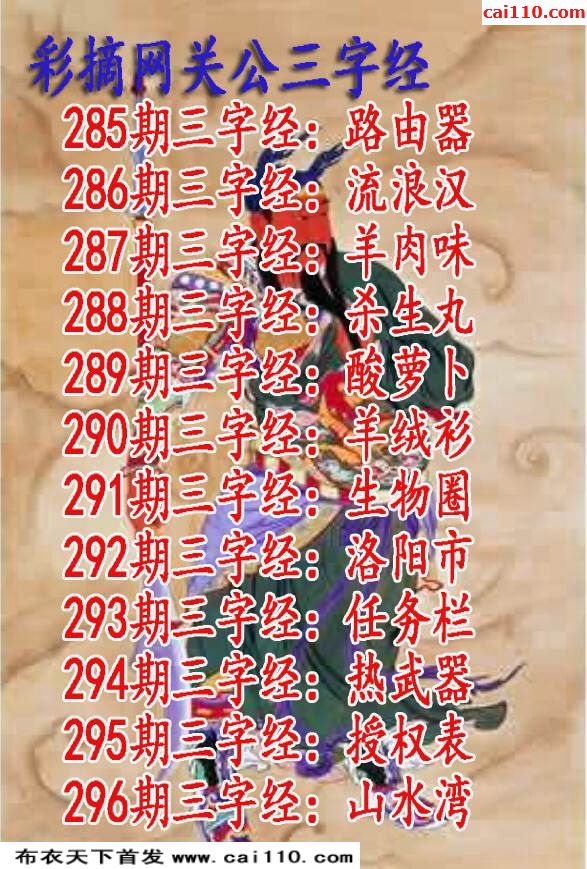 cai110.com
彩摘网关公三字经
285期三字经：路由器
286期三字经：流浪汉
287期三字经：羊肉味
288期三字经：杀生丸
289期三字经：酸萝卜
290期三字经：羊绒衫
291期三字经：生物圈
292期三字经：洛阳市
293期三字经：任务栏
294期三字经：热武器
295期三字经：授权表
296期三字经：山水湾
布衣天下首发 www.cai110.com